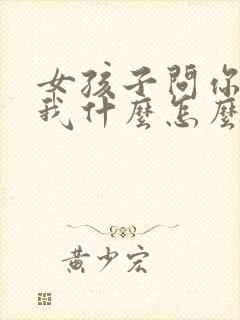 女孩子問你
我什麼怎麼
黃少宏